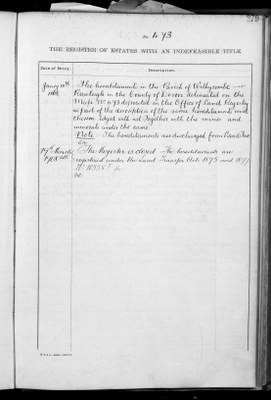 No 473
THE REGISTER OF ESTATES WITH AN INDEFEASIBLE TITLE
Date of Entry.
Description.
The hereditaments in the Parish of Withycombe
Rawleigh in the County of Devon delineated on the
Map No 473 deposited in the Office of Land Registry
as part of the description of the same hereditaments and
thereon edged with red Together with the mines and
minerals under the same.
Note The hereditaments are discharged from Land Tax
The Register is closed The hereditaments are
registered under the Land Transfer Acts 1875 and 1897